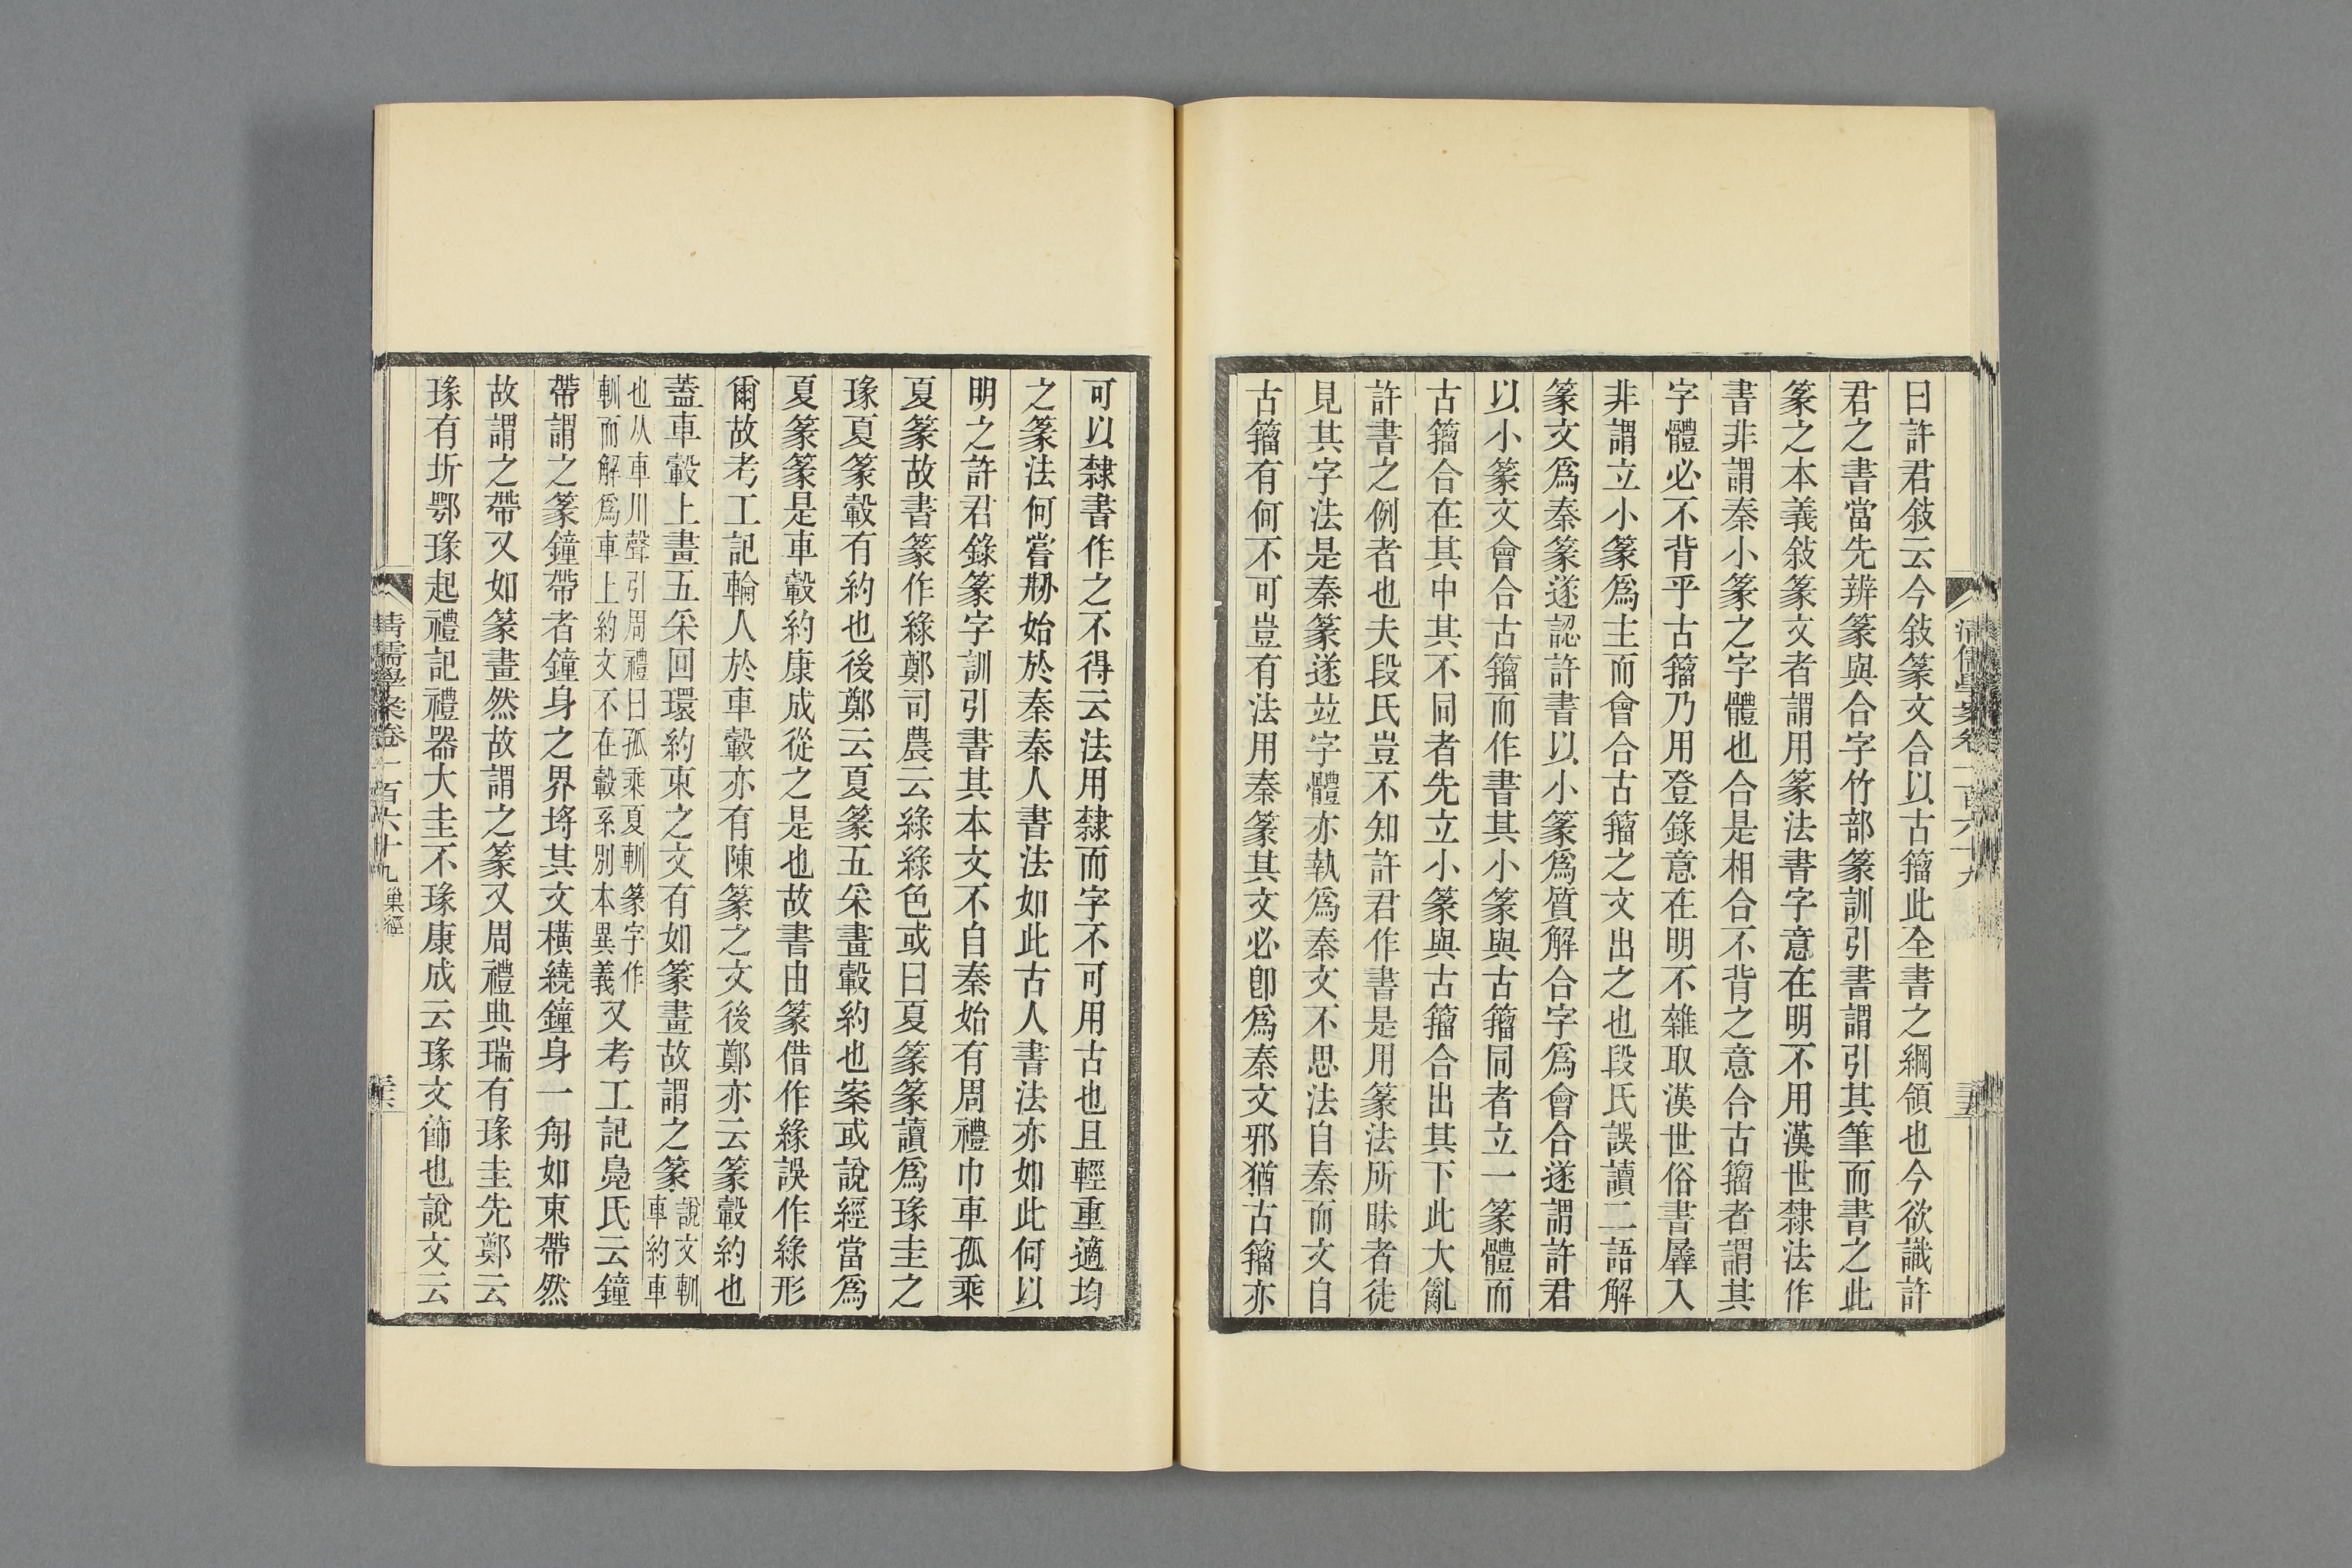 曰許君敍云今敍篆文合以古籒此全書之綱領也今欲識許
君之書當先辨篆與合字竹部篆訓引書謂引其筆而書之此
篆之本義敍篆文者謂用篆法書字意在明不用漢世隸法作
書非謂秦小篆之字體也合是相合不背之意合古籒者謂其
字體必不背乎古籒乃用登錄意在明不雜取漢世俗書羼入
非謂立小篆爲主而會合古籒之文出之也段氏誤讀二語解
篆文爲秦篆遂認許書以小篆爲質解合字爲會合遂謂許君
以小篆文會合古籒而作書其小篆與古籒同者立一篆體而
古籒合在其中其不同者先立小篆與古籒合出其下此大亂
許書之例者也夫段氏豈不知許君作書是用篆法所昧者徒
見其字法是秦篆遂竝字體亦執爲秦文不思法自秦而文自
古籒有何不可豈有法用秦篆其文必卽爲秦文邪猶古籒亦
清儒學案卷二百六十九
三五
可以隸書作之不得云法用隸而字不可用古也且輕重適均
之篆法何嘗刱始於秦秦人書法如此古人書法亦如此何以
明之許君錄篆字訓引書其本文不自秦始有周禮巾車孤乘
夏篆故書篆作綠鄭司農云綠綠色或曰夏篆篆讀爲瑑圭之
瑑夏篆轂有約也後鄭云夏篆五采畫轂約也案或說經當爲
夏篆篆是車轂約康成從之是也故書由篆借作緣誤作綠形
爾故考工記輪人於車轂亦有陳篆之文後鄭亦云篆轂約也
蓋車轂上畫五采回環約束之文有如篆畫故謂之篆說文䡅車約車
也从車川聲引周禮曰孤乘夏䡅篆字作䡅而解爲車上約文不在轂系別本異義又考工記鳧氏云鐘
帶謂之篆鐘帶者鐘身之界埒其文橫繞鐘身一匊如束帶然
故謂之帶又如篆畫然故謂之篆又周禮典瑞有瑑圭先鄭云
瑑有圻鄂瑑起禮記禮器大圭不瑑康成云瑑文飾也說文云
清儒學案卷二百六十九 巢經
三六